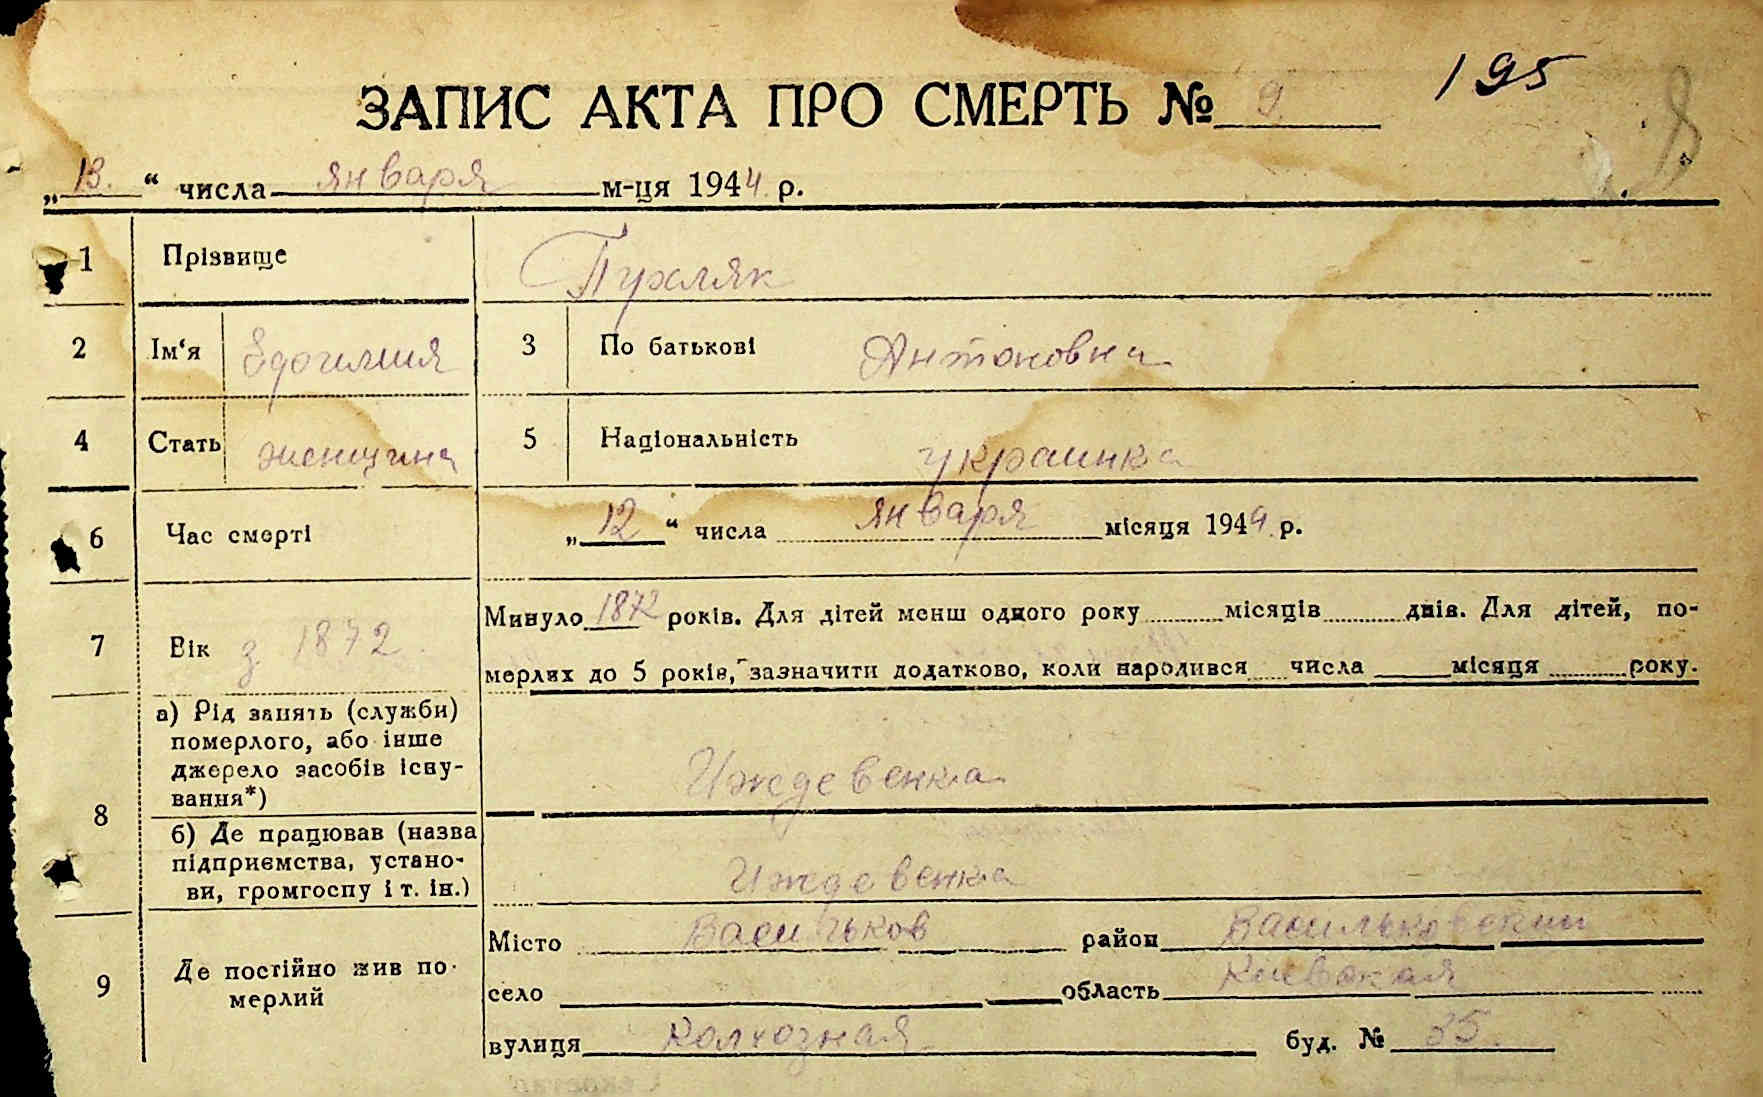 195
ЗАПИС АКТА ПРО СМЕРТЬ № 9
„13.“ числа января м-ця 1944 р.
1 Прізвище Пухляк
2 Ім‘я 3 По батькові Антоновна
4 Стать женщина 5 Національність украинка
6 Час смерті „12“ числа января місяця 1944 р.
7 Вік з 1872 Минуло 1872 років. Для дітей менш одного року місяців днів. Для дітей, по-
мерлих до 5 років, зазначити додатково, коли народився числа місяця року.
8 а) Рід занять (служби)
померлого, або інше
джерело засобів існу-
вання*) Иждевенка
б) Де працював (назва
підприємства, устано-
ви, громгоспу і т. ін.) Иждевенка
9 Де постійно жив по-
мерлий
Місто Васильков район Васильковский
село область Киевская
вулиця Колхозная буд. № 35.